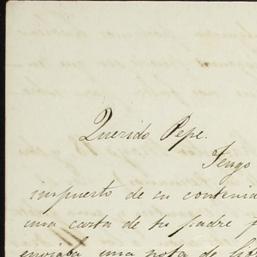 Querido Pepe.
Tengo
impuesto de su contenid
una carta de tu padre
enviaba una nota de